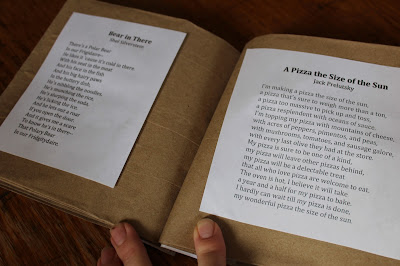 Bear in There
Shel Silverstein
There's a Polar Bear
In our Frigidaire—
He likes it 'cause it's cold in there.
With his seat in the meat
And his face in the fish
And his big hairy paws
In the buttery dish,
He's nibbling the noodles,
He's munching the rice,
He's slurping the soda,
He's licking the ice.
And he lets out a roar
If you open the door.
And it gives me a scare
To know he's in there—
That Polary Bear
In our Fridgitydaire.
A Pizza the Size of the Sun
Jack Prelutsky
I'm making a pizza the size of the sun,
a pizza that's sure to weigh more than a ton,
a pizza too massive to pick up and toss,
a pizza resplendent with oceans of sauce.
I'm topping my pizza with mountains of cheese,
with acres of peppers, pimentos, and peas,
with mushrooms, tomatoes, and sausage galore,
with every last olive they had at the store.
My pizza is sure to be one of a kind,
my pizza will leave other pizzas behind,
my pizza will be a delectable treat
that all who love pizza are welcome to eat.
The oven is hot, I believe it will take
a year and a half for my pizza to bake.
I hardly can wait till my pizza is done,
my wonderful pizza the size of the sun.